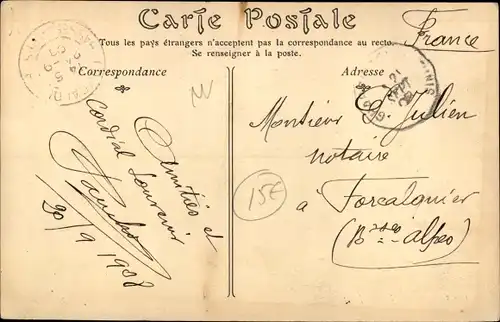 Carte Postale
Tous les pays étrangers n'acceptent pas la correspondance au recto.
Se renseigner à la poste.
France
Correspondance
Adresse
Amitiés et
Cordial Souvenir
20/9 1908
Monsieur E. Julien
notaire
a Forcalquier
(Bsses-Alpes)
15€
21
SEPT